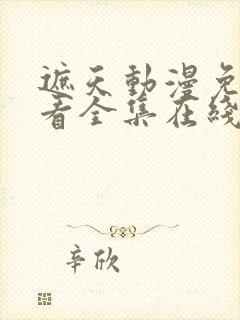 遮天動漫免
看全集在綫
辛欣